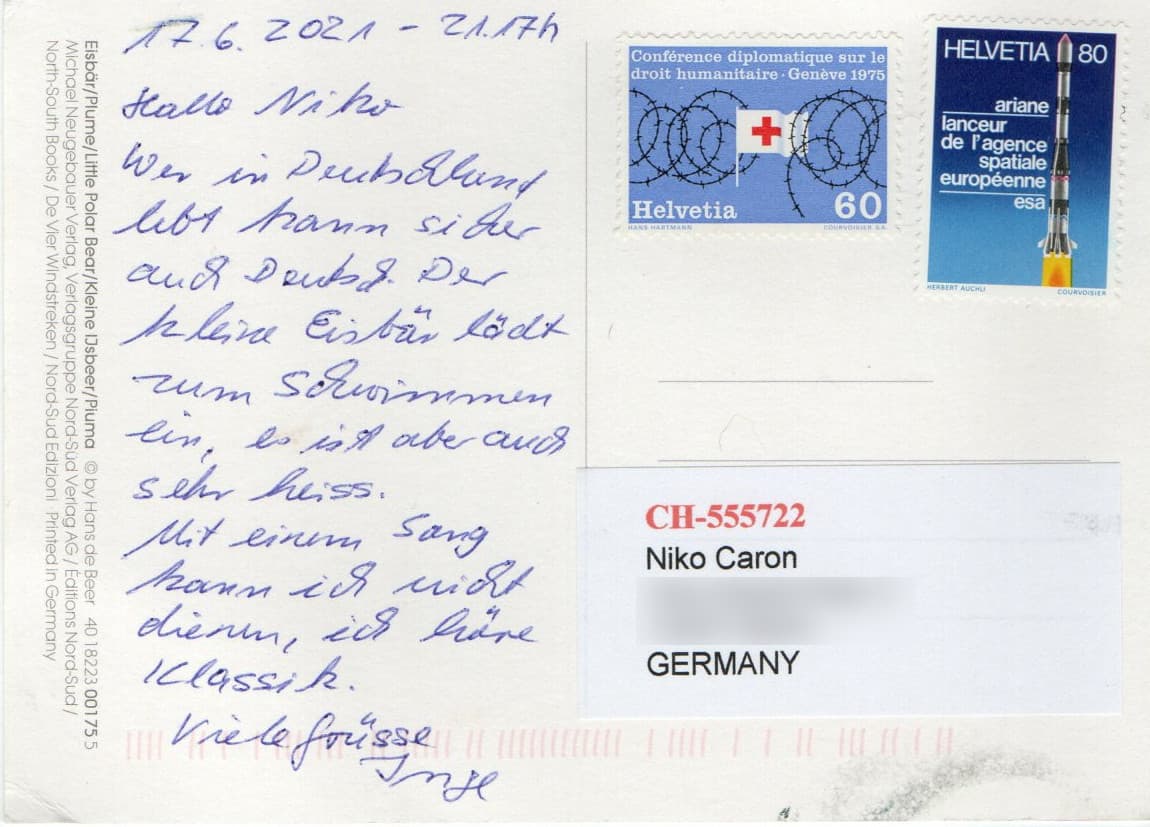 17.6.2021 - 21.17h
Hallo Niko
Wer in Deutschland
lebt kann sicher
auch Deutsch. Der
kleine Eisbär lädt
zum Schwimmen
ein, es ist aber auch
sehr heiss.
Mit einem Song
kann ich nicht
dienen, ich höre
Klassik.
Viele Grüsse
Inge
Eisbär/Plume/Little Polar Bear/Kleine IJsbeer/Piuma © by Hans de Beer 40 18223 00175 5
Michael Neugebauer Verlag, Verlagsgruppe Nord-Süd Verlag AG / Editions Nord-Sud /
North-South Books / De Vier Windstreken / Nord-Sud Edizioni Printed in Germany
Conférence diplomatique sur le
droit humanitaire · Genève 1975
Helvetia 60
HANS HARTMANN COURVOISIER S.A.
HELVETIA 80
ariane
lanceur
de l'agence
spatiale
européenne
esa
HERBERT AUCHLI COURVOISIER
CH-555722
Niko Caron
GERMANY